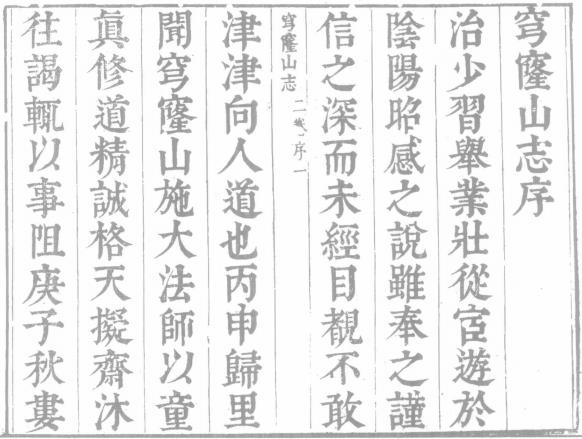 穹窿山志序
治少習舉業壯從宦遊於
陰陽昭感之說雖奉之謹
信之深而未經目覩不敢
穹窿山志
序一
津津向人道也丙申歸里
聞穹窿山施大法師以童
眞修道精誠格天擬齋沐
往謁輒以事阻庚子秋婁